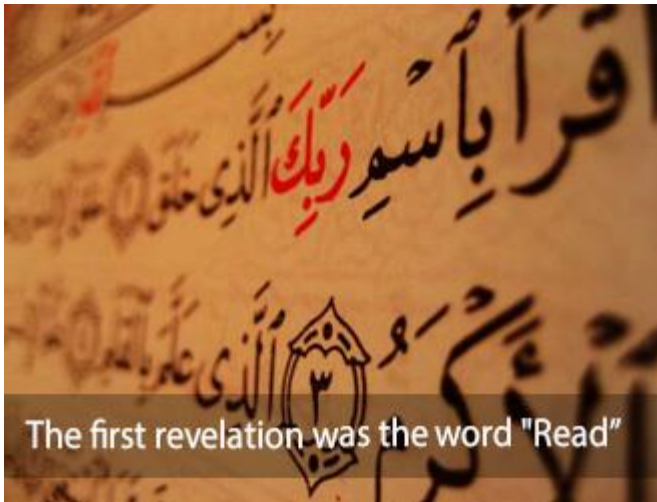 بِسْ
ٱقْرَأْ بِٱسْمِ رَبِّكَ ٱلَّذِى خَلَقَ ١
ٱلْأَكْرَمُ ٣ ٱلَّذِى عَلَّمَ بِٱلْقَلَمِ
The first revelation was the word "Read”